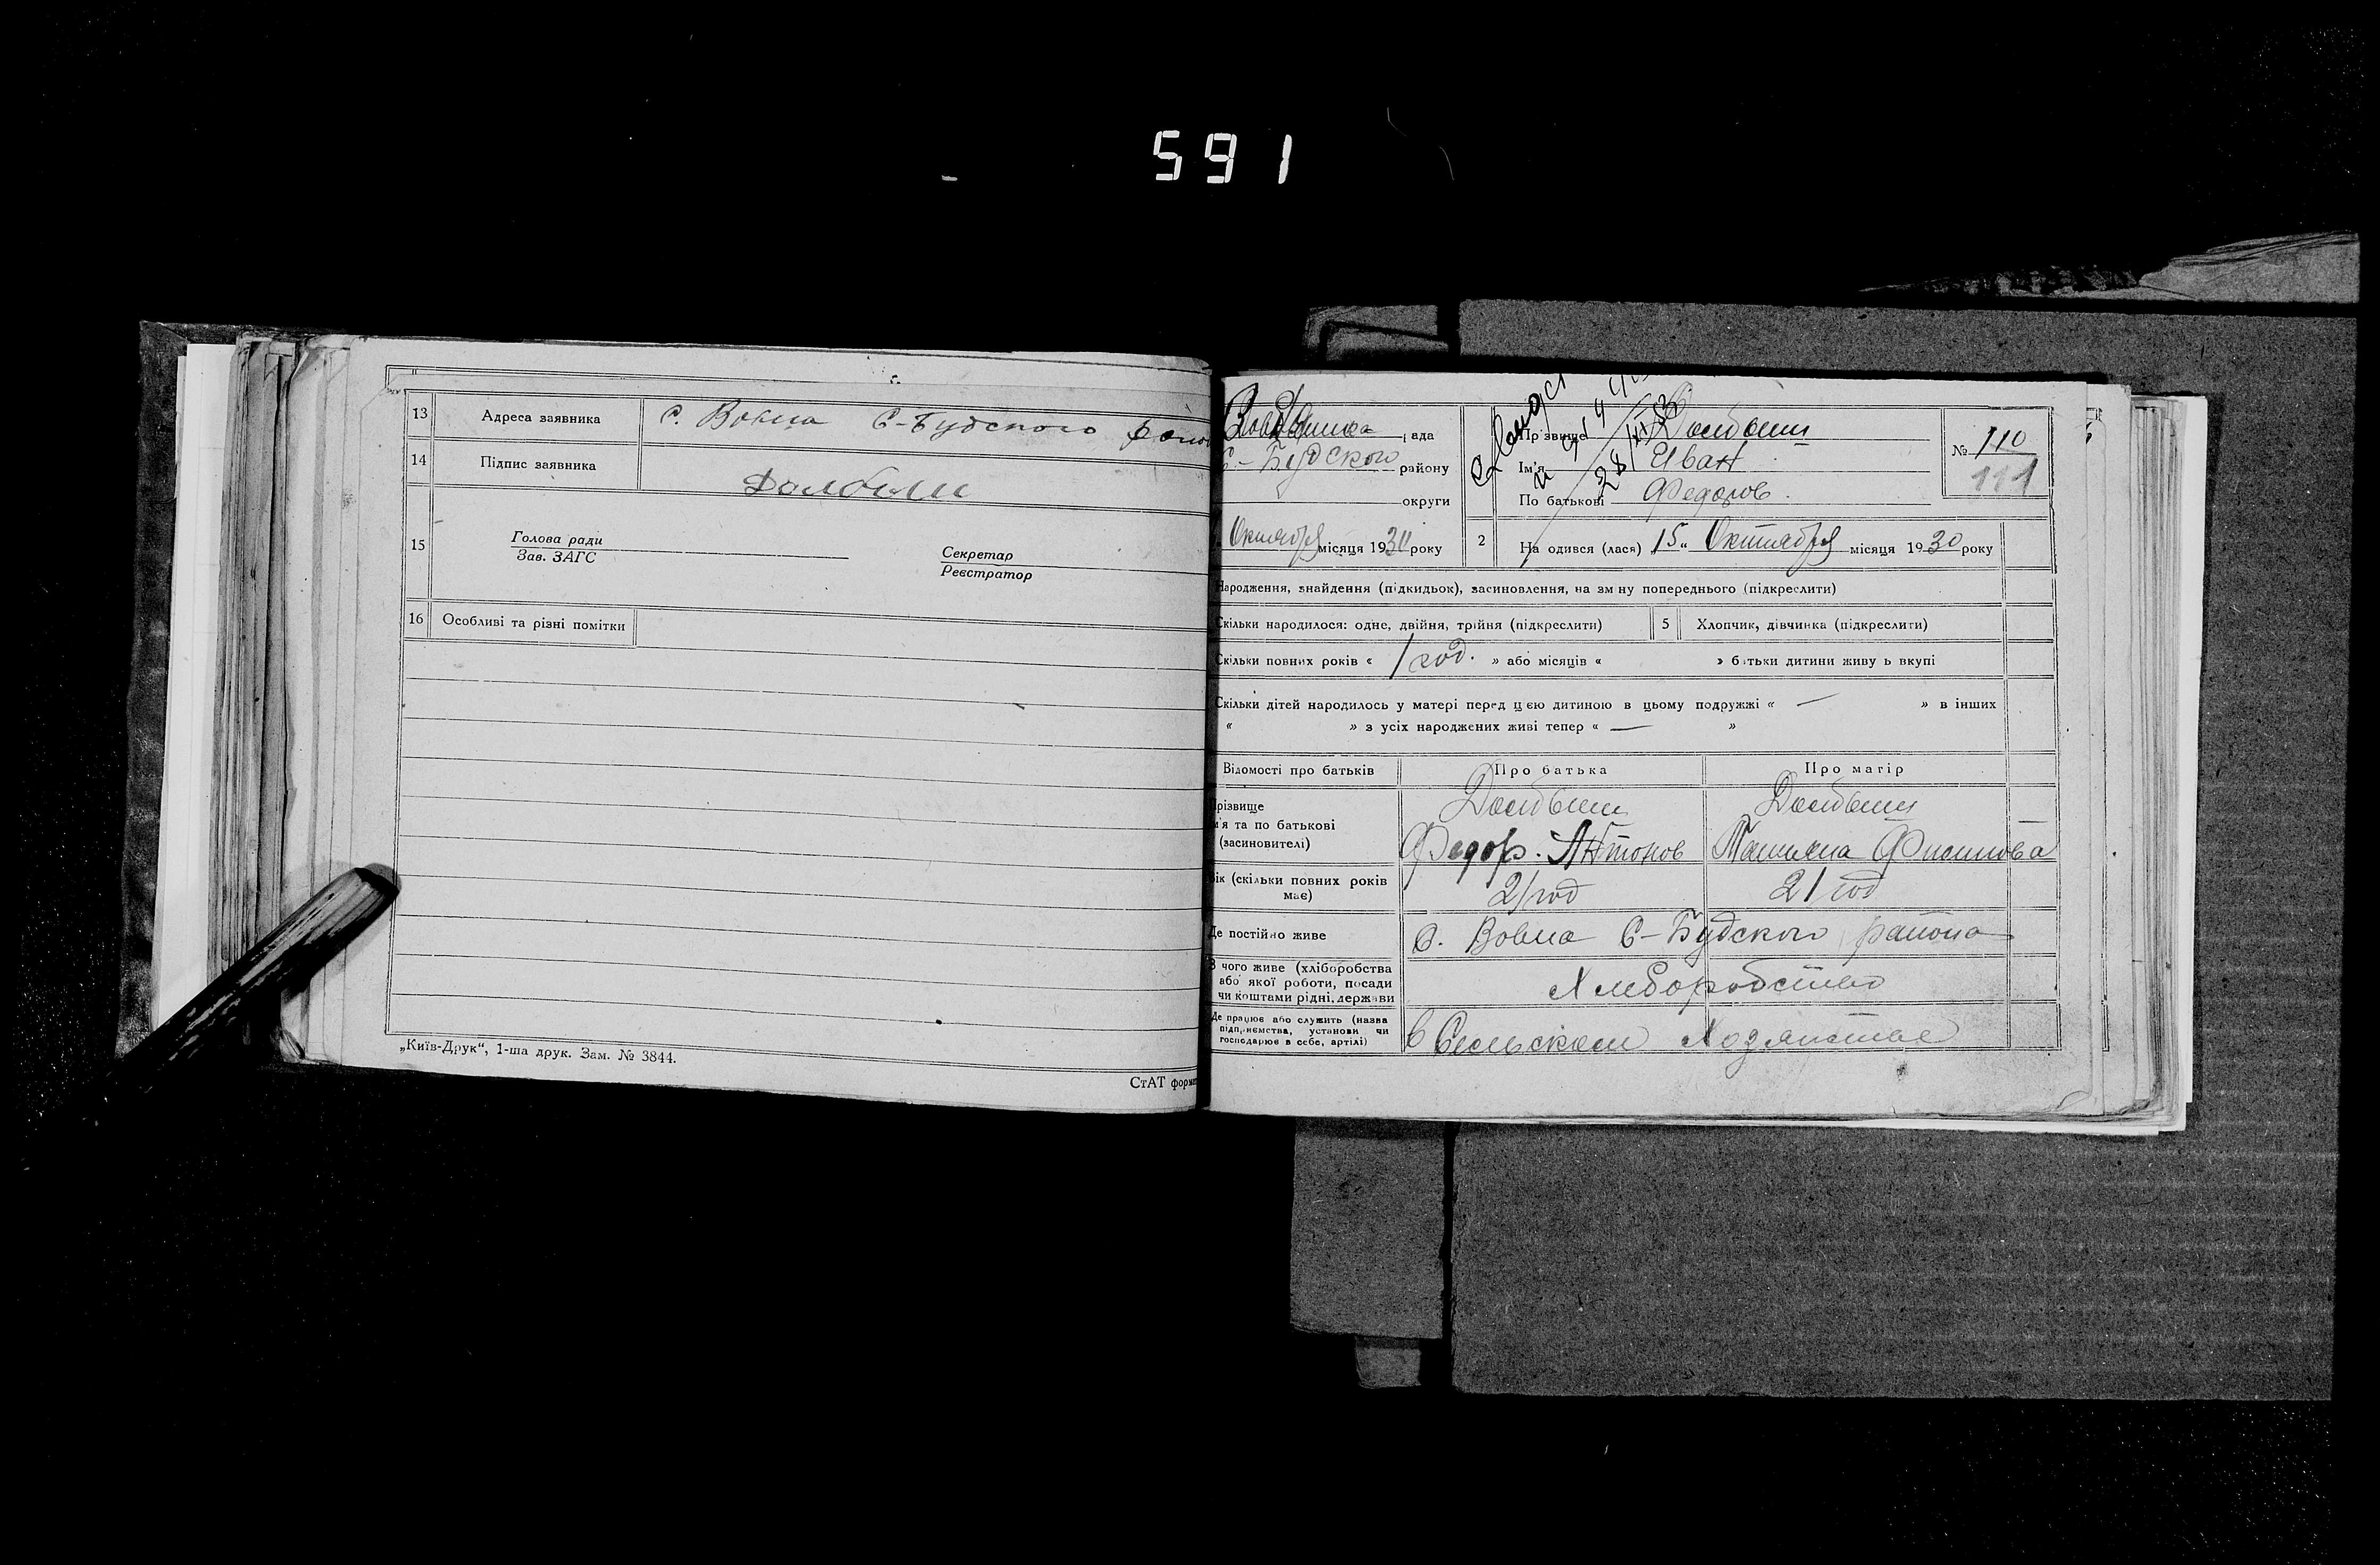 591
13 Адреса заявника С. Вовна С-Будского
14 Підпис заявника Долбыш
15 Голова ради
Зав. ЗАГС
Секретар
Реєстратор
16 Особливі та різні помітки
„Київ-Друк“, 1-ша друк. Зам. № 3844.
СтАТ форма
рада
С-Будского району
округи
Октября місяця 1930 року
Прізвище Долбыш
Ім'я Иван
По батькові Федоров.
№ 110
111
2 На одився (лася) „15“ Октября місяця 1930 року
Народження, знайдення (підкидьок), засиновлення, на зм ну попереднього (підкреслити)
Скільки народилося: одне, двійня, трійня (підкреслити) 5 Хлопчик, дівчинка (підкреслити)
Скільки повних років « 1 год. » або місяців « » батьки дитини живу ь вкупі
Скільки дітей народилось у матері перед цією дитиною в цьому подружжі « — » в інших
« » з усіх народжених живі тепер « — »
Відомості про батьків Про батька Про матір
Прізвище Долбыш Долбыш
ім'я та по батькові
(засиновителі) Федор. Антонов Татьяна
Вік (скільки повних років
має) 21 год 21 год
Де постійно живе С. Вовна С-Будского района
З чого живе (хліборобства
або якої роботи, посади
чи коштами рідні, держави Хлеборобство
Де працює або служить (назва
підприємства, установи чи
господарює в себе, артілі) в Сельском Хозяистве